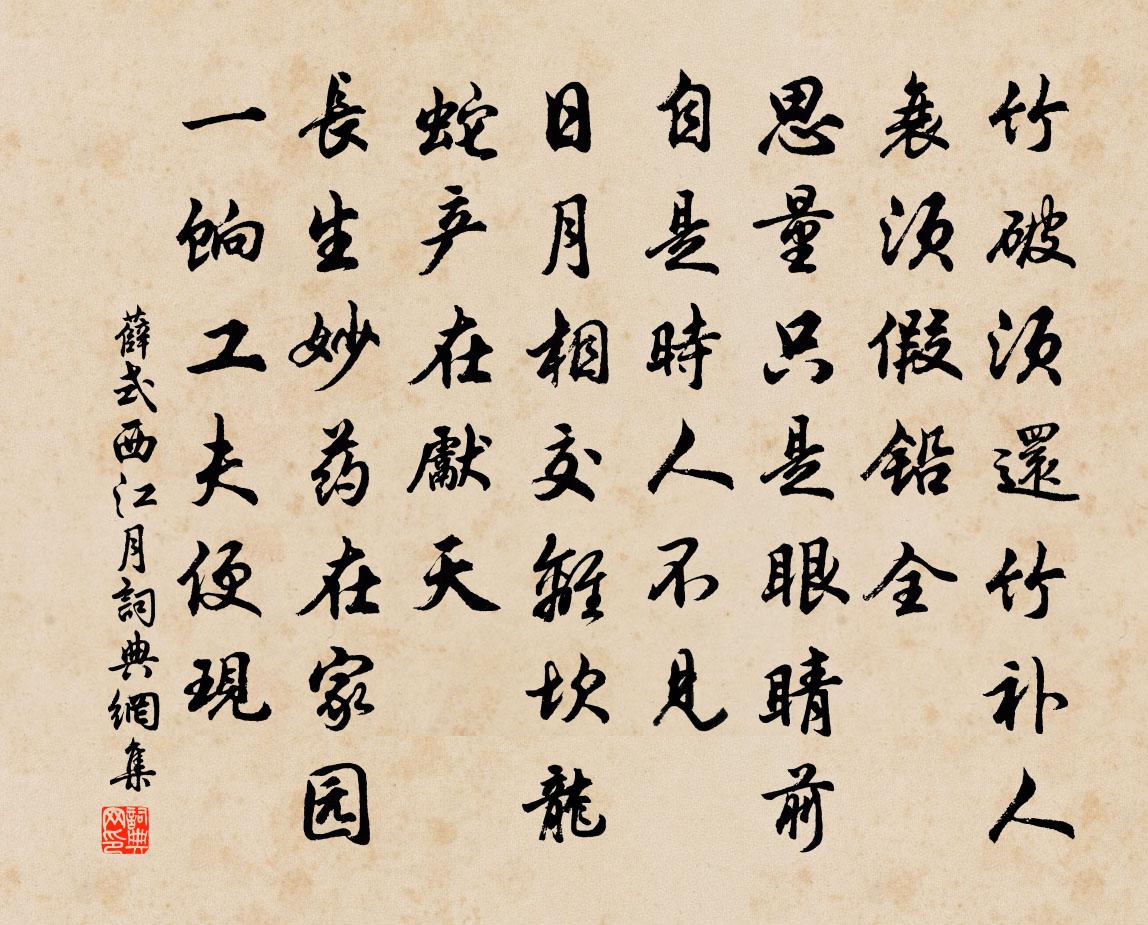 竹破须還竹补人
衰须假铅全
思量只是眼睛前
自是時人不見
日月相交離坎龍
蛇产在獻天
長生妙药在家园
一餉工夫便現
薛式西江月詞典網集
詞典网印